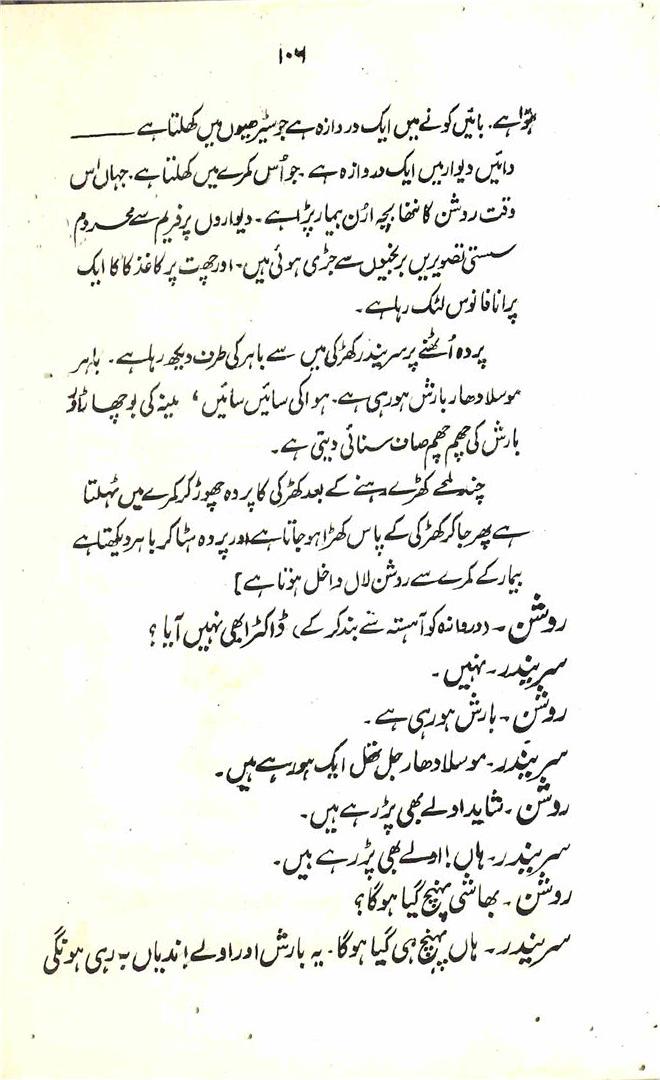 ۱۰۶
ہؤا ہے۔ بائیں کونے میں ایک دروازہ ہے جو سیڑھیوں میں کھلتا ہے ———
دائیں دیوار میں ایک دروازہ ہے۔ جو اُس کمرے میں کھلتا ہے۔ جہاں اس
وقت روشن کا ننھا بچہ ارُن بیمار پڑا ہے۔ دیواروں پر فریم سے محروم
سستی تصویریں بریخیوں سے جڑی ہوئی ہیں۔ اور چھت پر کاغذ کا کا ایک
پرانا فانوس لٹک رہا ہے۔
پردہ اُٹھنے پر سریندر کھڑکی میں سے باہر کی طرف دیکھ رہا ہے۔ باہر
موسلا دھار بارش ہو رہی ہے۔ ہوا کی سائیں سائیں، مینہ کی بوچھاڑ اور
بارش کی چھم چھم صاف سنائی دیتی ہے۔
چند لمحے کھڑے رہنے کے بعد کھڑکی کا پردہ چھوڑ کر کمرے میں ٹہلتا
ہے پھر جا کر کھڑکی کے پاس کھڑا ہو جاتا ہے اور پردہ ہٹا کر باہر دیکھتا ہے
بیمار کے کمرے سے روشن لال داخل ہوتا ہے]
روشن۔ (دروازہ کو آہستہ سے بند کر کے) ڈاکٹر ابھی نہیں آیا؟
سریندر۔ نہیں۔
روشن۔ بارش ہو رہی ہے۔
سریندر۔ موسلا دھار جل تھل ایک ہو رہے ہیں۔
روشن۔ شاید اولے بھی پڑ رہے ہیں۔
سریندر۔ ہاں! اولے بھی پڑ رہے ہیں۔
روشن۔ بھاشی پہنچ گیا ہوگا؟
سریندر۔ ہاں پہنچ ہی گیا ہوگا۔ یہ بارش اور اولے! ندیاں بہ رہی ہونگی